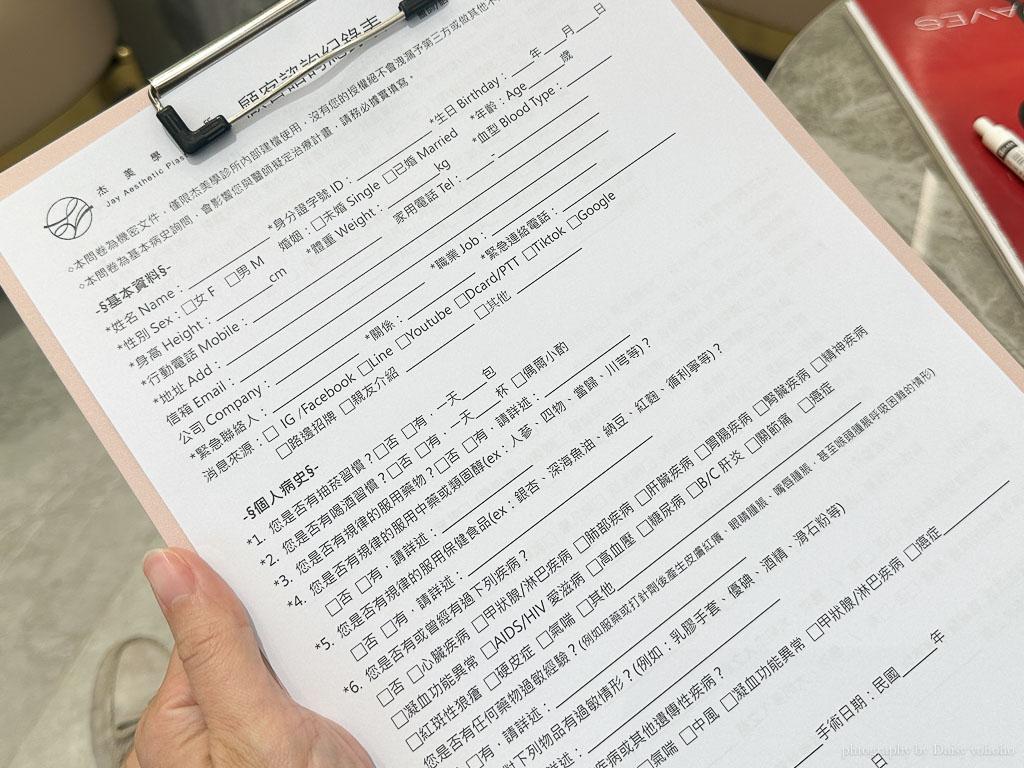 顧客諮詢紀錄表
杰 美 學
Jay Aesthetic Plas
◇本問卷為機密文件，僅限杰美學診所內部建檔使用，沒有您的授權絕不會洩漏予第三方或做其他不
◇本問卷為基本病史詢問，會影響您與醫師擬定治療計畫，請務必據實填寫。
-§基本資料§-
*姓名 Name： *身分證字號 ID： *生日 Birthday： 年 月 日
*性別 Sex：□女 F □男 M 婚姻：□未婚 Single □已婚 Married *年齡：Age 歲
*身高 Height： cm *體重 Weight： kg *血型 Blood Type：
*行動電話 Mobile： 家用電話 Tel： -
*地址 Add：
信箱 Email： *職業 Job：
公司 Company： *緊急連絡電話：
*緊急聯絡人： *關係：
消息來源：□ IG /Facebook □Line □Youtube □Dcard/PTT □Tiktok □Google
□路邊招牌 □親友介紹 □其他
-§個人病史§-
*1. 您是否有抽菸習慣？□否 □有：一天 包
*2. 您是否有喝酒習慣？□否 □有：一天 杯 □偶爾小酌
*3. 您是否有規律的服用藥物？□否 □有，請詳述：
*4. 您是否有規律的服用中藥或類固醇(ex：人蔘、四物、當歸、川芎等)？
□否 □有，請詳述：
*5. 您是否有規律的服用保健食品(ex：銀杏、深海魚油、納豆、紅麴、循利寧等)？
□否 □有，請詳述：
*6. 您是否有或曾經有過下列疾病？
□否 □心臟疾病 □甲狀腺/淋巴疾病 □肺部疾病 □肝臟疾病 □胃腸疾病 □腎臟疾病 □精神疾病
□凝血功能異常 □AIDS/HIV 愛滋病 □高血壓 □糖尿病 □B/C 肝炎 □關節痛 □癌症
□紅斑性狼瘡 □硬皮症 □氣喘 □其他
您是否有任何藥物過敏經驗？(例如服藥或打針劑後產生皮膚紅癢、眼睛腫脹、嘴唇腫脹、甚至喉頭腫脹呼吸困難的情形)
□有，請詳述：
對下列物品有過敏情形？(例如：乳膠手套、優碘、酒精、滑石粉等)
疾病或其他遺傳性疾病？
□氣喘 □中風 □凝血功能異常 □甲狀腺/淋巴疾病 □癌症
手術日期：民國 年
日
photography by Daisy yohoho